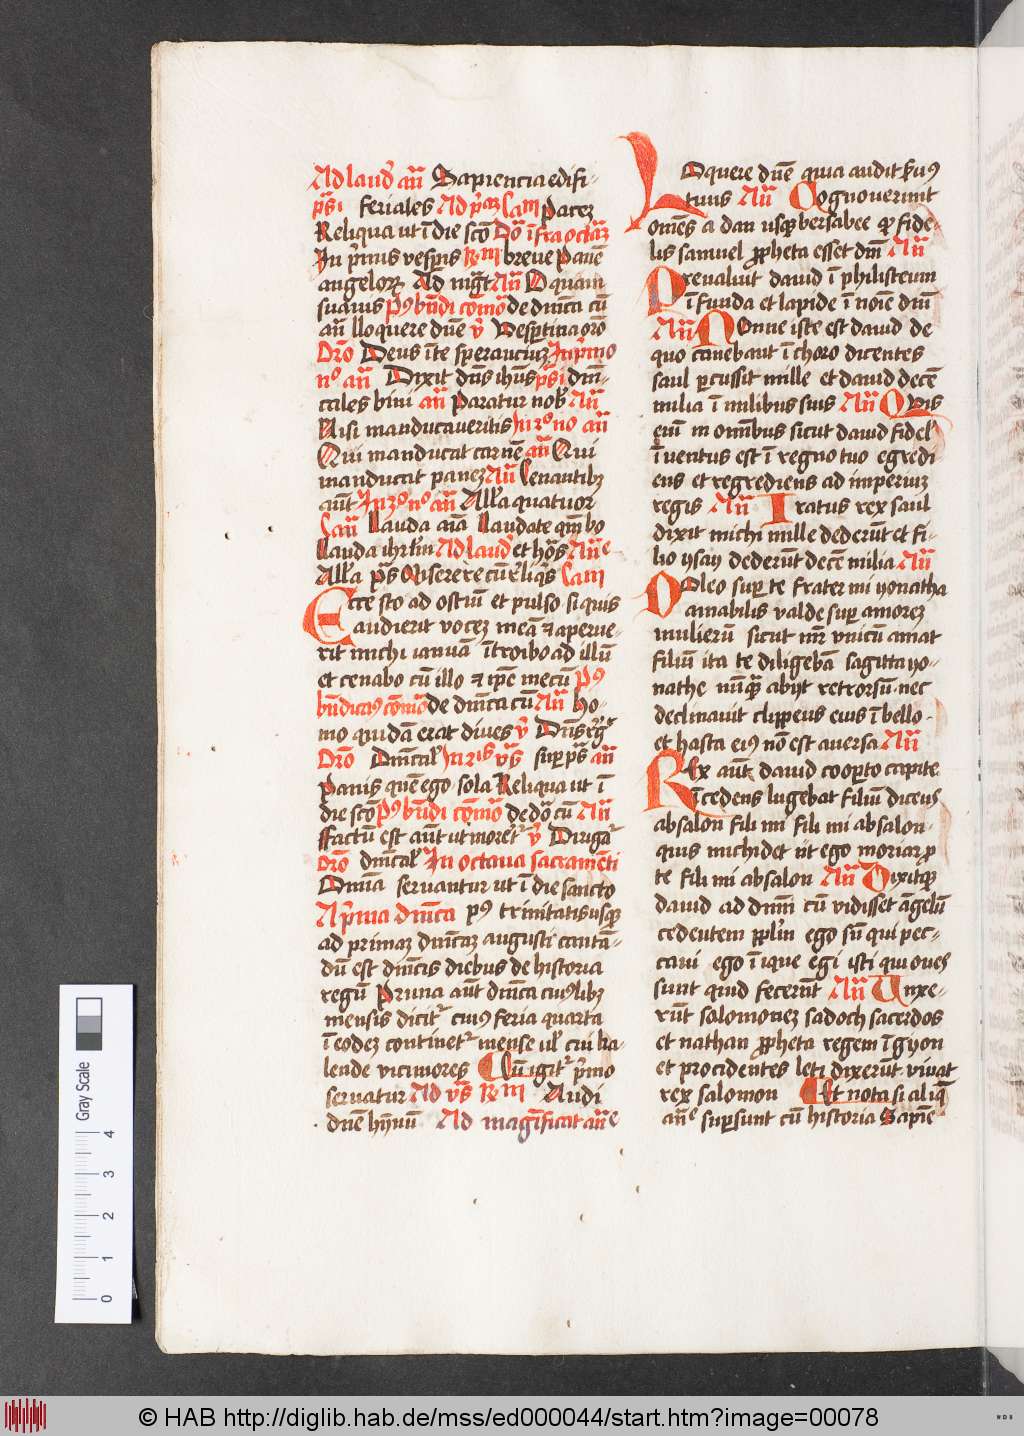 Ad laud an̄ Sapiencia edifi-
ps̄i feriales Ad pͥaꝫ Cam̄ Paceꝫ
Reliqua ut ī die sc̄o Dō̄a īfra octā̄ꝫ
In pͥmis vesp̄is Rm̄ breve Panē
angeloꝝ Ad mgt̄ An̄ O quam
suavis Pꝰ bn̄di cōmō de dnīca cū
an̄ lloquere dn̄e v̄ Vesp̄tina orō
Orō Deus ī te sperancium In pͥmo
nͦ an̄ Dixit dn̄s ihūs ps̄i dnī-
cales bini an̄ Paratur nob̄ An̄
Nisi manducaveritis In 2ͦ nͦ an̄
Qui manducat carnē an̄ Qui
manducat paneꝫ An̄ Cenantibꝰ
aūt In 3ͦ nͦ an̄ All'a quatuor
Cam̄ Lauda aīa Laudate qm̄ bo
Lauda ihrl'm Ad laud et hōs An̄e
All'a ps̄ Miserere cū rel'iqs Cam̄
Ecce sto ad ostiū et pulso si quis
audierit voceꝫ meā ⁊ aperue-
rit michi ianuā ītroibo ad illū
et cenabo cū illo ⁊ ip̄e mecū Pꝰ
bn̄dictꝰ cōmō de dnīca cū An̄ ho-
mo quidā erat dives v̄ Dn̄s rgͣ
Orō Dnīcal' In 2is vs̄ sup̄ ps̄ an̄
Panis quē ego sola Reliqua ut ī
die sc̄o Pꝰ bn̄di cōmō de dō̄a cū An̄
ffactū est aūt ut moretͬ v̄ Dirigatͬ
Orō dnīcal' In octava sacramēti
Omīa servantur ut ī die sancto
A pͥma dnīca pꝰ trinitatis usꝙ
ad primaꝫ dnīcaꝫ augusti cantā-
dū est dnīcis diebus de historia
regū Prima aūt dnīca cuiuslibꝫ
mensis dicitͬ cuiꝰ feria quarta
ī eodeꝫ continetͬ mense ul' cui ka-
lende viciniores Cū igitͬ pͥmo
servatur Ad vs̄ Rm̄ Audi
dn̄e hȳnū Ad magīficat an̄e
Loquere dn̄e quia audit s̄vꝰ
tuus An̄ Cognoverunt
omēs a dan usꝙ bersabee ꝙ fide-
lis samuel ꝓpheta esset dn̄i An̄
Prevaluit david ī philisteum
ī funda et lapide ī noīe dn̄i
An̄ Nonne iste est david de
quo canebant ī choro dicentes
saul ꝑcussit mille et david decē
milia ī milibus suis An̄ Quis
enī in omībus sicut david fidel'
īventus est ī regno tuo egredi
ens et regrediens ad imperiuꝫ
regis An̄ Iratus rex saul
dixit michi mille dederūt et fi-
lio ysay dederūt decē milia An̄
Doleo suꝑ te frater mi yonatha
amabilis valde suꝑ amoreꝫ
mulierū sicut mr̄ unicū amat
filiū ita te diligebā sagitta yo-
nathe nūqͣ abijt retrorsū nec
declinavit clippeus eius ī bello
et hasta eiꝰ nō est aversa An̄
Rex aūt david cooꝑto capite
īcedens lugebat filiū dicens
absalon fili mi fili mi absalon
quis michi det ut ego moriar ꝓ
te fili mi absalon An̄ Dixitꝙ
david ad dn̄m cū vidisset āgelū
cedentem ppl'm ego sū qui pec-
cavi ego īique egi isti qui oves
sunt quid fecerūt An̄ Unxe-
rūt salomoneꝫ sadoch sacerdos
et nathan ꝓpheta regem ī gyon
et procidentes leti dixerūt vivat
rex salomon Et nota si aliqͣ
an̄e suꝑsunt cū historia Sapiē
Gray Scale
0 1 2 3 4
© HAB http://diglib.hab.de/mss/ed000044/start.htm?image=00078